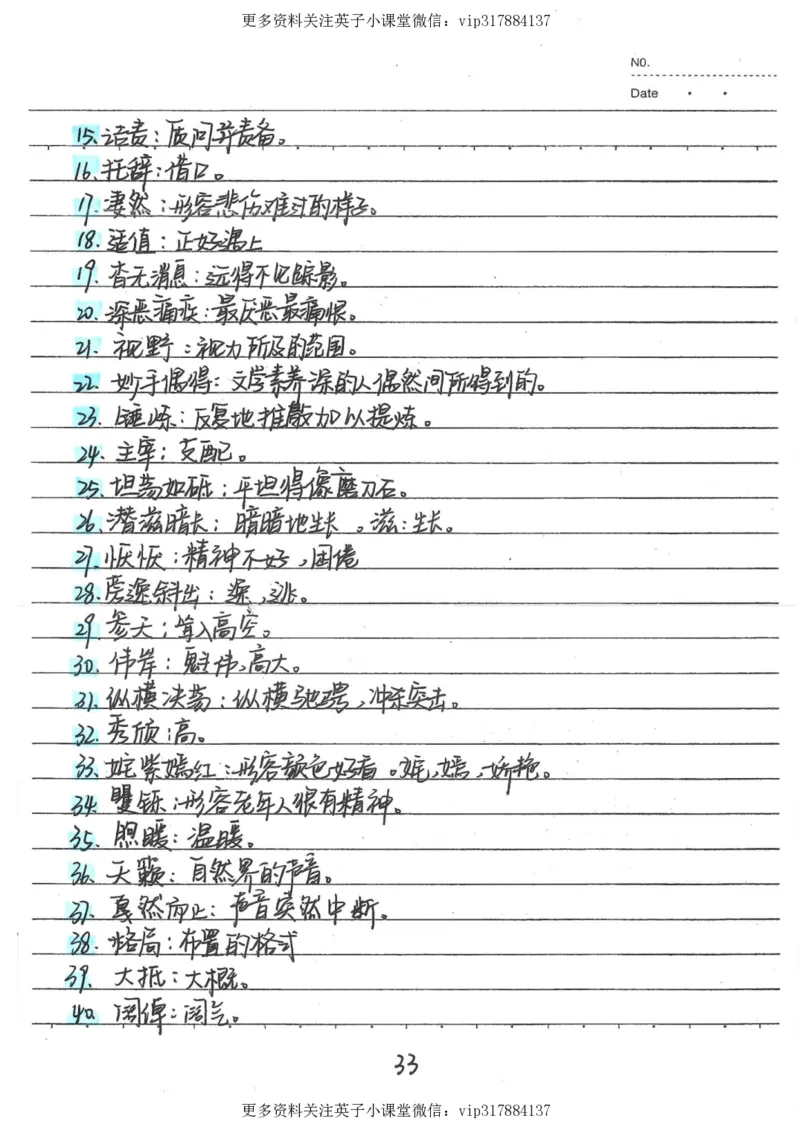 更多资料关注英子小课堂微信：vip317884137
NO.
Date
15.诘责：质问并责备。
16.托辞：借口。
17.凄然：形容悲伤难过的样子。
18.适值：正好遇上
19.杳无消息：远得不见踪影。
20.深恶痛疾：最厌恶最痛恨。
21.视野：视力所及的范围。
22.妙手偶得：文学素养深的人偶然间所得到的。
23.锤炼：反复地推敲加以提炼。
24.主宰：支配。
25.坦荡如砥：平坦得像磨刀石。
26.潜滋暗长：暗暗地生长。滋：生长。
27.恹恹：精神不好，困倦
28.旁逸斜出：逸，逃。
29.参天：耸入高空。
30.伟岸：魁伟，高大。
31.纵横决荡：纵横驰骋，冲杀突击。
32.秀颀：高。
33.姹紫嫣红：形容颜色好看。姹，嫣，娇艳。
34.矍铄：形容老年人很有精神。
35.煦暖：温暖。
36.天籁：自然界的声音。
37.戛然而止：声音突然中断。
38.格局：布置的格式
39.大抵：大概。
40.阔绰：阔气。
33
更多资料关注英子小课堂微信：vip317884137